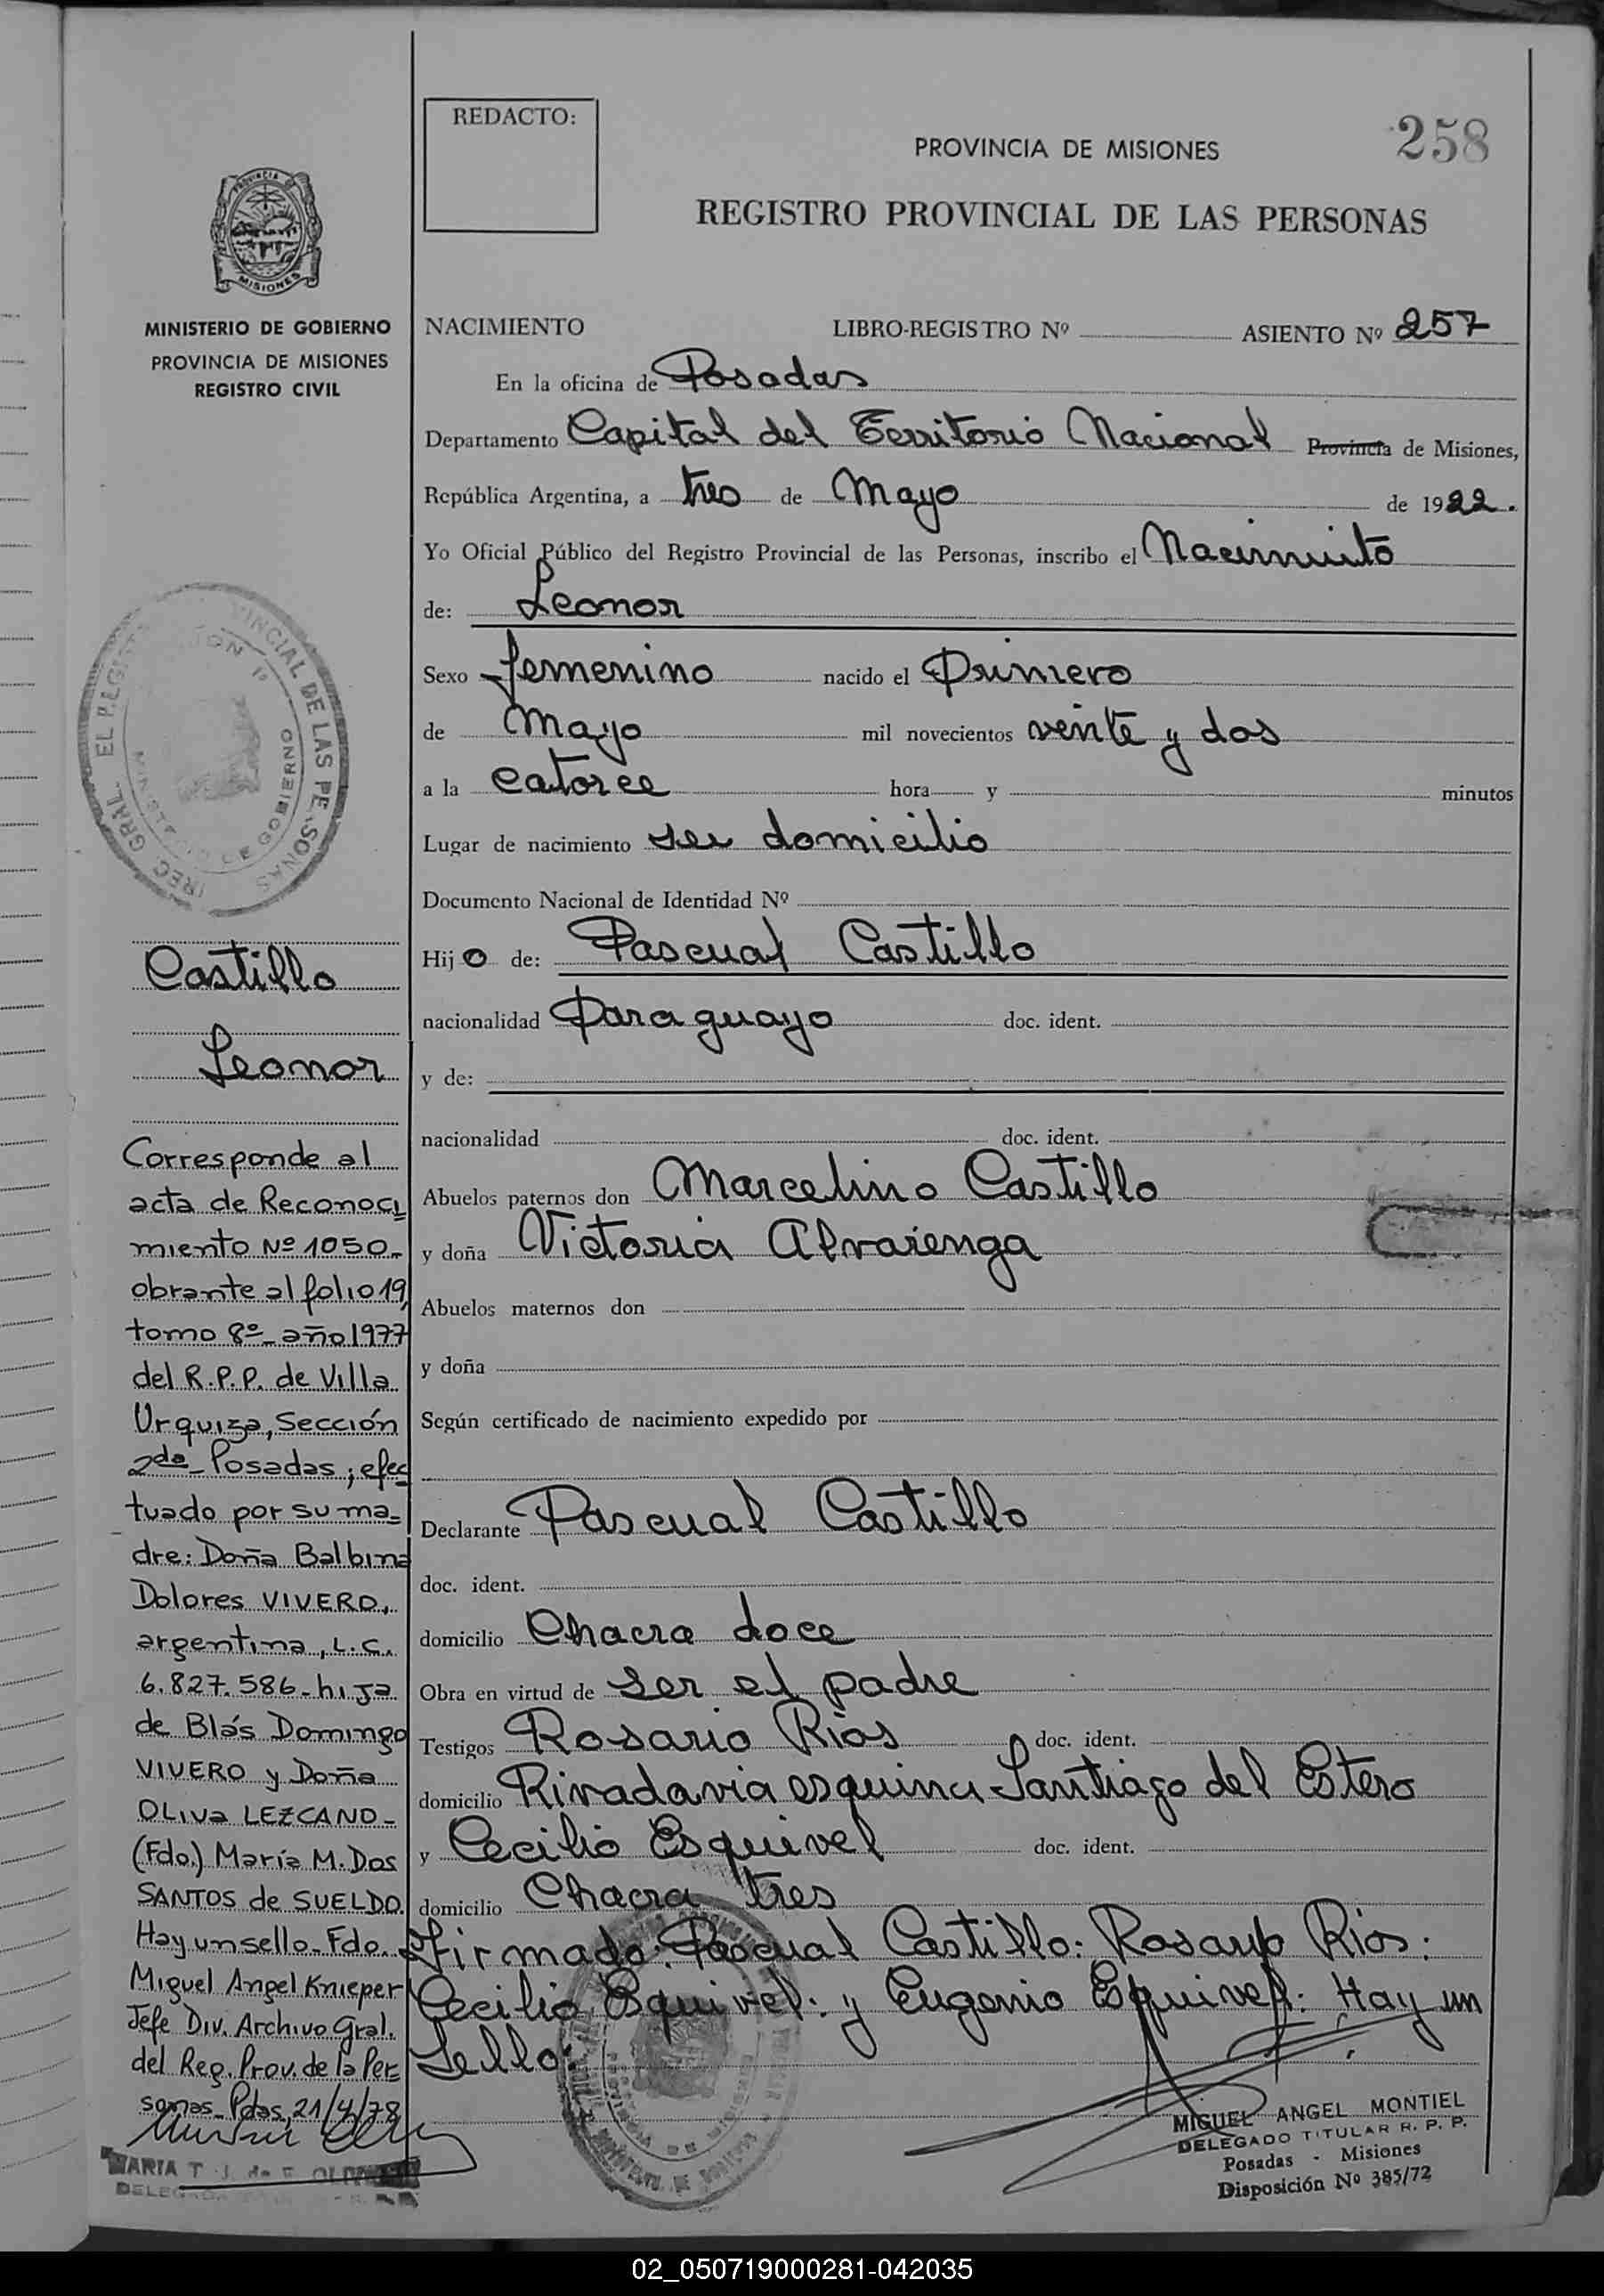 REDACTO:
258
PROVINCIA DE MISIONES
REGISTRO PROVINCIAL DE LAS PERSONAS
MISIONES
MINISTERIO DE GOBIERNO
PROVINCIA DE MISIONES
REGISTRO CIVIL
NACIMIENTO LIBRO-REGISTRO Nº ASIENTO Nº 257
En la oficina de Posadas
Departamento Capital del Territorio Nacional Provincia de Misiones,
República Argentina, a tres de Mayo de 1922.
Yo Oficial Público del Registro Provincial de las Personas, inscribo el Nacimiento
de: Leonor
Sexo femenino nacido el Primero
de Mayo mil novecientos veinte y dos
a la catorce hora y minutos
Lugar de nacimiento su domicilio
Documento Nacional de Identidad Nº
Hijo de: Pascual Castillo
nacionalidad Paraguayo doc. ident.
y de:
nacionalidad doc. ident.
Abuelos paternos don Marcelino Castillo
y doña Victoria Alvarenga
Abuelos maternos don
y doña
Según certificado de nacimiento expedido por
Declarante Pascual Castillo
doc. ident.
domicilio Chacra doce
Obra en virtud de ser el padre
Testigos Rosario Ríos doc. ident.
domicilio Rivadavia esquina Santiago del Estero
y Cecilio Esquivel doc. ident.
domicilio Chacra tres
Firmado: Pascual Castillo: Rosario Ríos:
Cecilio Esquivel: y Eugenio Esquivel: Hay un
Sello:
MIGUEL ANGEL MONTIEL
DELEGADO TITULAR R. P. P.
Posadas - Misiones
Disposición Nº 385/72
Castillo
Leonor
Corresponde al
acta de Reconoci
miento Nº 1050-
obrante al folio 19,
tomo 8º- año 1977
del R.P.P. de Villa
Urquiza, Sección
2da- Posadas; efec
tuado por su ma-
dre: Doña Balbina
Dolores VIVERO,
argentina, L.C.
6.827.586- hija
de Blás Domingo
VIVERO y Doña
OLIVA LEZCANO-
(Fdo.) María M. Dos
SANTOS de SUELDO.
Hay un sello- Fdo.
Miguel Angel Knieper
Jefe Div. Archivo Gral.
del Reg. Prov. de la Per-
sonas- Pdas, 21/4/78
MARIA T
02_050719000281-042035